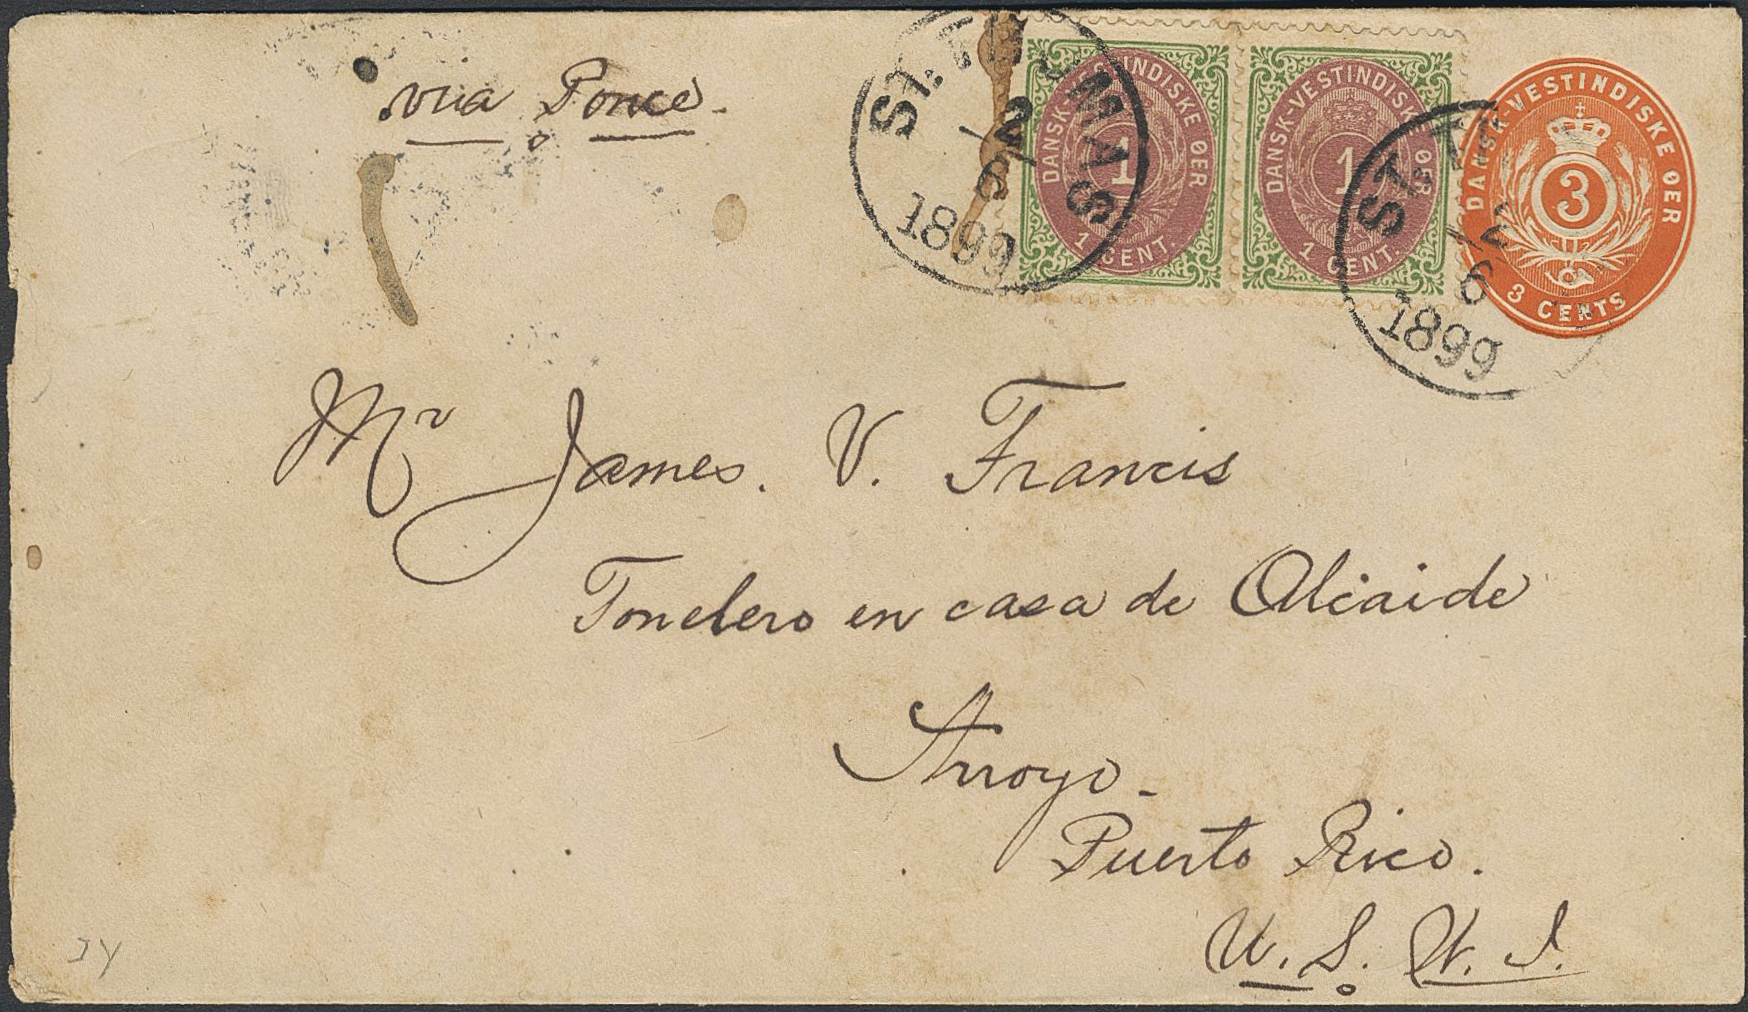 via Ponce.
ST. THOMAS
2/6
1899
DANSK-VESTINDISKE ØER
1
1 CENT.
DANSK-VESTINDISKE ØER
1
1 CENT.
ST. T
2/6
1899
DANSK-VESTINDISKE ØER
3
3 CENTS
Mr James. V. Francis
Tonelero en casa de Alcaide
Arroyo-
Puerto Rico.
U.S. W.I.